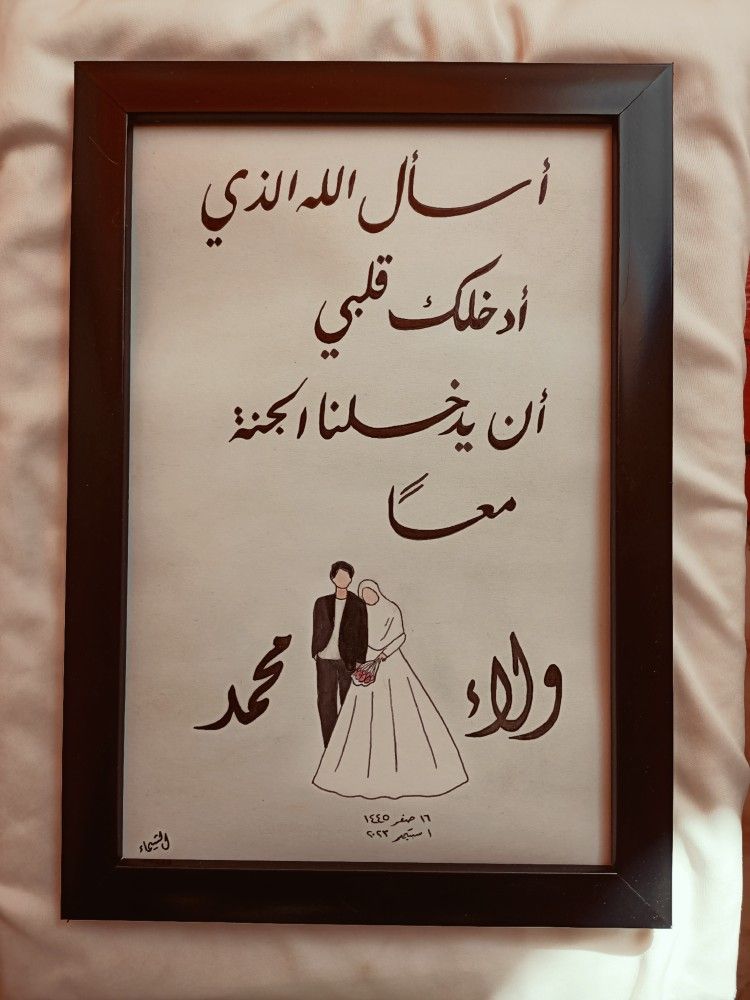 أسأل الله الذي
أدخلك قلبي
أن يدخلنا الجنة
معاً
ولاء
محمد
١٦ صفر ١٤٤٥
١ سبتمبر ٢٠٢٣
الشيماء